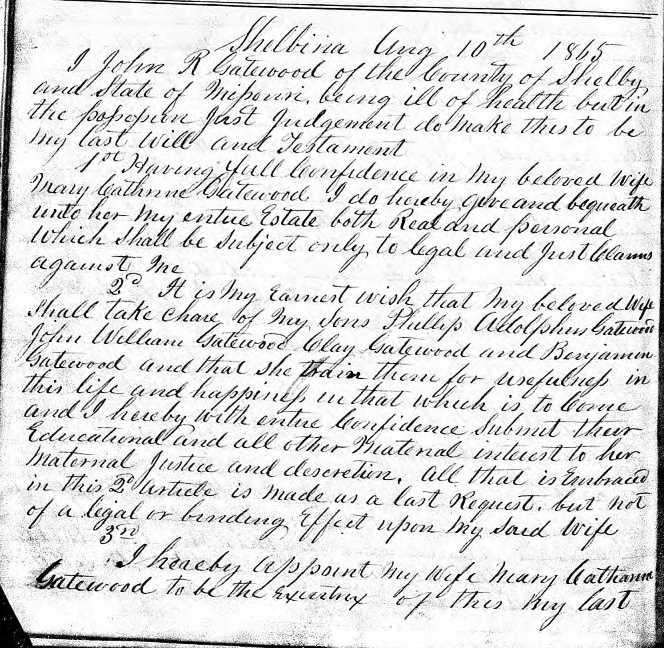 Shelbina Aug 10th 1865
I John R Gatewood of the County of Shelby
and State of Missouri, being ill of health but in
the possession Just Judgement do make this to be
my last Will and Testament
1st Having full Confidence in my beloved Wife
Mary Cathrine Gatewood I do hereby give and bequeath
unto her my entire Estate both Real and personal
Which shall be subject only to legal and Just Claims
against me
2d It is my Earnest wish that my beloved Wife
shall take chare of my sons Phillip Adolphus Gatewood
John William Gatewood Clay Gatewood and Benjamin
Gatewood and that she train them for usefulness in
this life and happiness in that which is to Come
and I hereby with entire Confidence submit their
Educational and all other Material interest to her
Maternal Justice and descretion. All that is Embraced
in this 2d Article is made as a last Request. but not
of a legal or binding Effect upon my said Wife
3rd
I hereby appoint my Wife Mary Catharine
Gatewood to be the Executrix of this my last